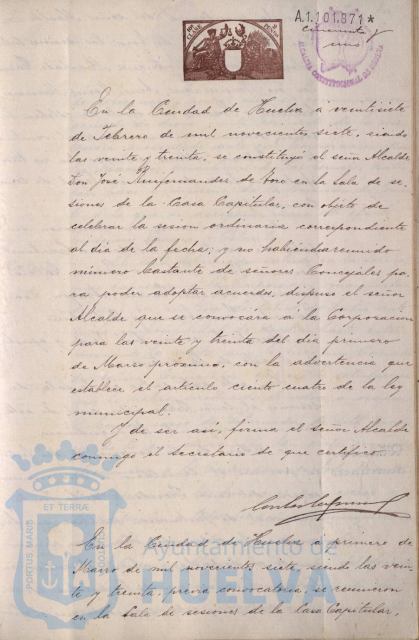 A.1.101.871*
cincuenta y
uno
ALCALDIA CONSTITUCIONAL DE HUELVA
En la Ciudad de Huelva á veintisiete
de Febrero de mil novecientos siete, siendo
las veinte y treinta, se constituyó el señor Alcalde
Don José en la Sala de se-
siones de la Casa Capitular, con objeto de
celebrar la sesion ordinaria correspondiente
al dia de la fecha; y no habiendo reunido
número bastante de señores Concejales pa-
ra poder adoptar acuerdos, dispuso el señor
Alcalde que se convocára á la Corporacion
para las veinte y treinta del dia primero
de Marzo próximo, con la advertencia que
establece el artículo ciento cuatro de la ley
municipal.
Y de ser así, firma el señor Alcalde
conmigo el Secretario de que certifico.
En la Ciudad de Huelva á primero de
Marzo de mil novecientos siete, siendo las vein-
te y treinta, prévia convocatoria, se reunieron
en la Sala de sesiones de la Casa Capitular,
PORTUS MARIS ET TERRÆ CUSTODIA
Ayuntamiento de
HUELVA